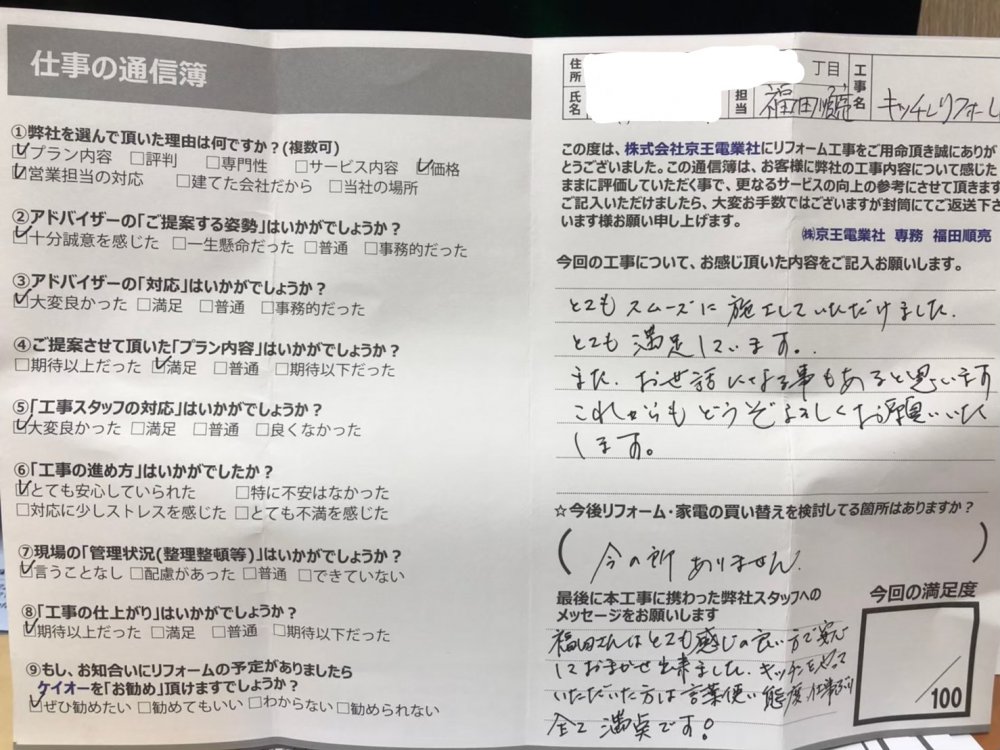 仕事の通信簿
①弊社を選んで頂いた理由は何ですか?(複数可)
☑プラン内容 □評判 □専門性 □サービス内容 ☑価格
☑営業担当の対応 □建てた会社だから □当社の場所
②アドバイザーの「ご提案する姿勢」はいかがでしょうか?
☑十分誠意を感じた □一生懸命だった □普通 □事務的だった
③アドバイザーの「対応」はいかがでしょうか?
☑大変良かった □満足 □普通 □事務的だった
④ご提案させて頂いた「プラン内容」はいかがでしょうか?
□期待以上だった ☑満足 □普通 □期待以下だった
⑤「工事スタッフの対応」はいかがでしょうか?
☑大変良かった □満足 □普通 □良くなかった
⑥「工事の進め方」はいかがでしたか?
☑とても安心していられた □特に不安はなかった
□対応に少しストレスを感じた □とても不満を感じた
⑦現場の「管理状況(整理整頓等)」はいかがでしょうか?
☑言うことなし □配慮があった □普通 □できていない
⑧「工事の仕上がり」はいかがでしょうか?
☑期待以上だった □満足 □普通 □期待以下だった
⑨もし、お知合いにリフォームの予定がありましたら
ケイオーを「お勧め」頂けますでしょうか?
☑ぜひ勧めたい □勧めてもいい □わからない □勧められない
住所 丁目 工事名 キッチンリフォーム
氏名 担当 福田順亮
この度は、株式会社京王電業社にリフォーム工事をご用命頂き誠にありが
とうございました。この通信簿は、お客様に弊社の工事内容について感じた
ままに評価していただく事で、更なるサービスの向上の参考にさせて頂きます
ご記入いただけましたら、大変お手数ではございますが封筒にてご返送下さ
います様お願い申し上げます。
㈱京王電業社 専務 福田順亮
今回の工事について、お感じ頂いた内容をご記入お願いします。
とてもスムーズに施工していただけました.
とても満足しています。
また、お世話になる事もあると思います
これからもどうぞよろしくお願いいた
します。
☆今後リフォーム・家電の買い替えを検討してる箇所はありますか?
(今の所ありません.)
最後に本工事に携わった弊社スタッフへの
メッセージをお願いします
福田さんはとても感じの良い方で安心
しておまかせ出来ました.キッチンをやって
いただいた方は言葉使い態度、仕事ぶり
全て満点です!
今回の満足度
/100